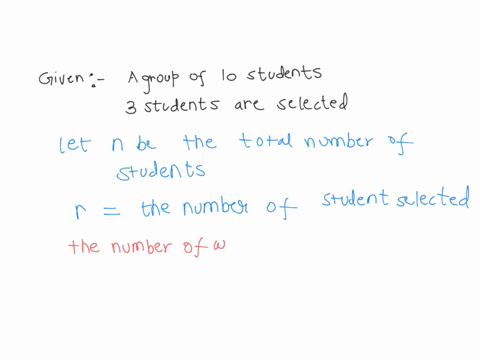 Given:- A group of 10 students
3 students are selected
let n be the total number of
students
r = the number of student selected
the number of w